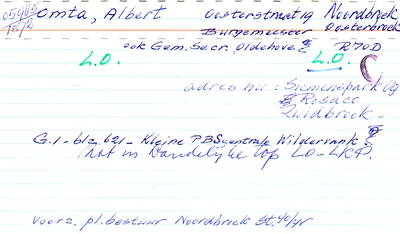 Omta, Albert Oosterstraat 19 Noordbroek
Burgemeester Oosterbroek
ook Gem. Secr. Oldehove R70D
L.O. L.O.
adres nu: Siemenspark
Rosaco
Zuidbroek -
G.1 - blz. 621 - Kleine PBScentrale Wildervank
that in Landelijke top LO-LKP.
Voorz. pl. bestuur Noordbroek St. 40/45